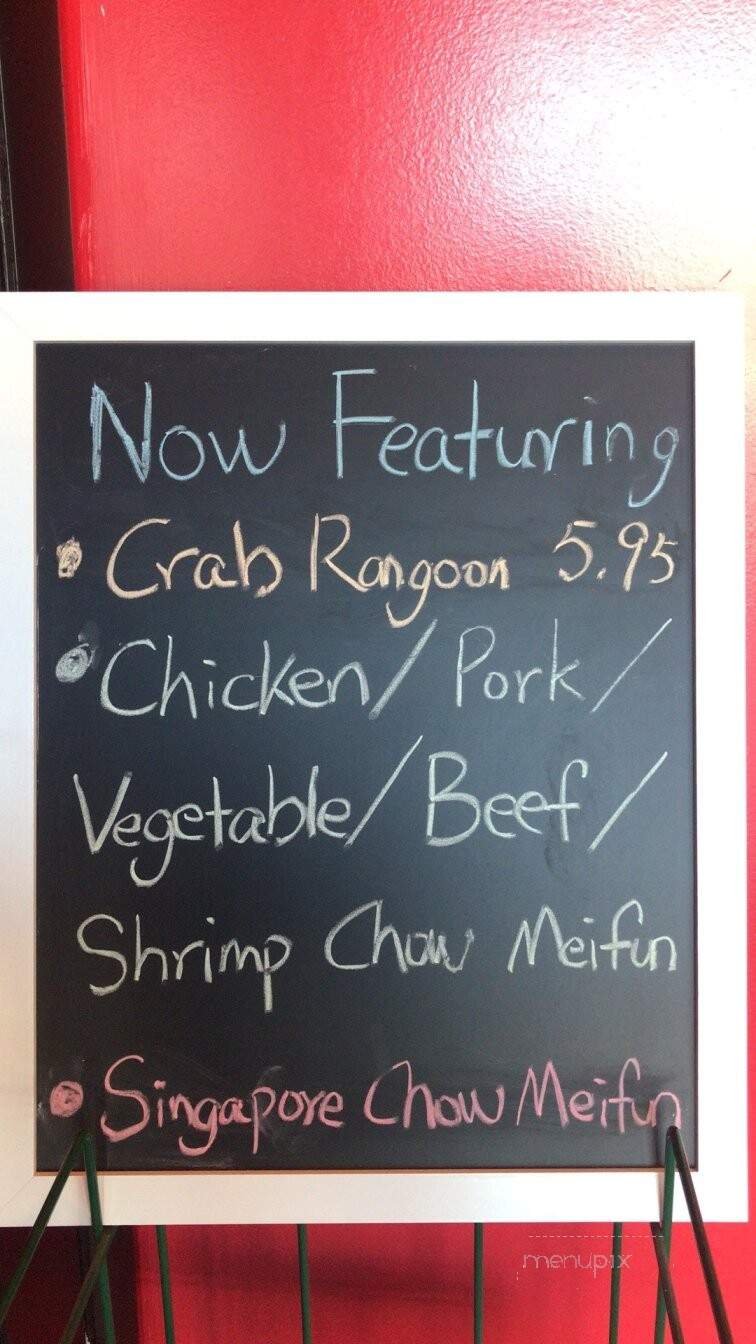 Now Featuring
• Crab Rangoon 5.95
• Chicken/ Pork/
Vegetable/ Beef/
Shrimp Chow Meifun
• Singapore Chow Meifun
menupix